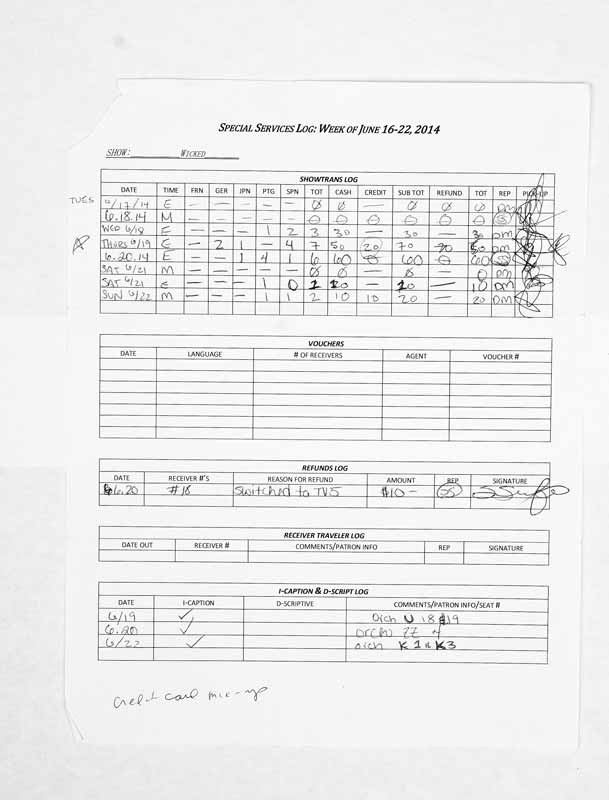 SPECIAL SERVICES LOG: WEEK OF JUNE 16-22, 2014
SHOW: WICKED
SHOWTRANS LOG
DATE TIME FRN GER JPN PTG SPN TOT CASH CREDIT SUB TOT REFUND TOT REP PICK-UP
TUES 6/17/14 E — — — — — Ø Ø — Ø Ø Ø DM
6.18.14 M — — — — — 0 0 0 0 0 0 S
WED 6/18 E — — — 1 2 3 30 — 30 — 30 DM
THURS 6/19 E — 2 1 — 4 7 50 20 70 20 50 DM
6.20.14 E — — 1 4 1 6 60 0 60 0 60 S
SAT 6/21 M — — — — — Ø Ø — Ø — 0 DM
SAT 6/21 E — — — 1 0 1 10 — 10 — 10 DM
SUN 6/22 M — — — 1 1 2 10 10 20 — 20 DM
VOUCHERS
DATE LANGUAGE # OF RECEIVERS AGENT VOUCHER #
REFUNDS LOG
DATE RECEIVER #'S REASON FOR REFUND AMOUNT REP SIGNATURE
6.20 #18 Switched to TVS $10-
RECEIVER TRAVELER LOG
DATE OUT RECEIVER # COMMENTS/PATRON INFO REP SIGNATURE
I-CAPTION & D-SCRIPT LOG
DATE I-CAPTION D-SCRIPTIVE COMMENTS/PATRON INFO/SEAT #
6/19 ✓ Orch U 18 &19
6.20 ✓ orch ZZ 4
6/22 ✓ orch K1 & K3
credit card mix-up